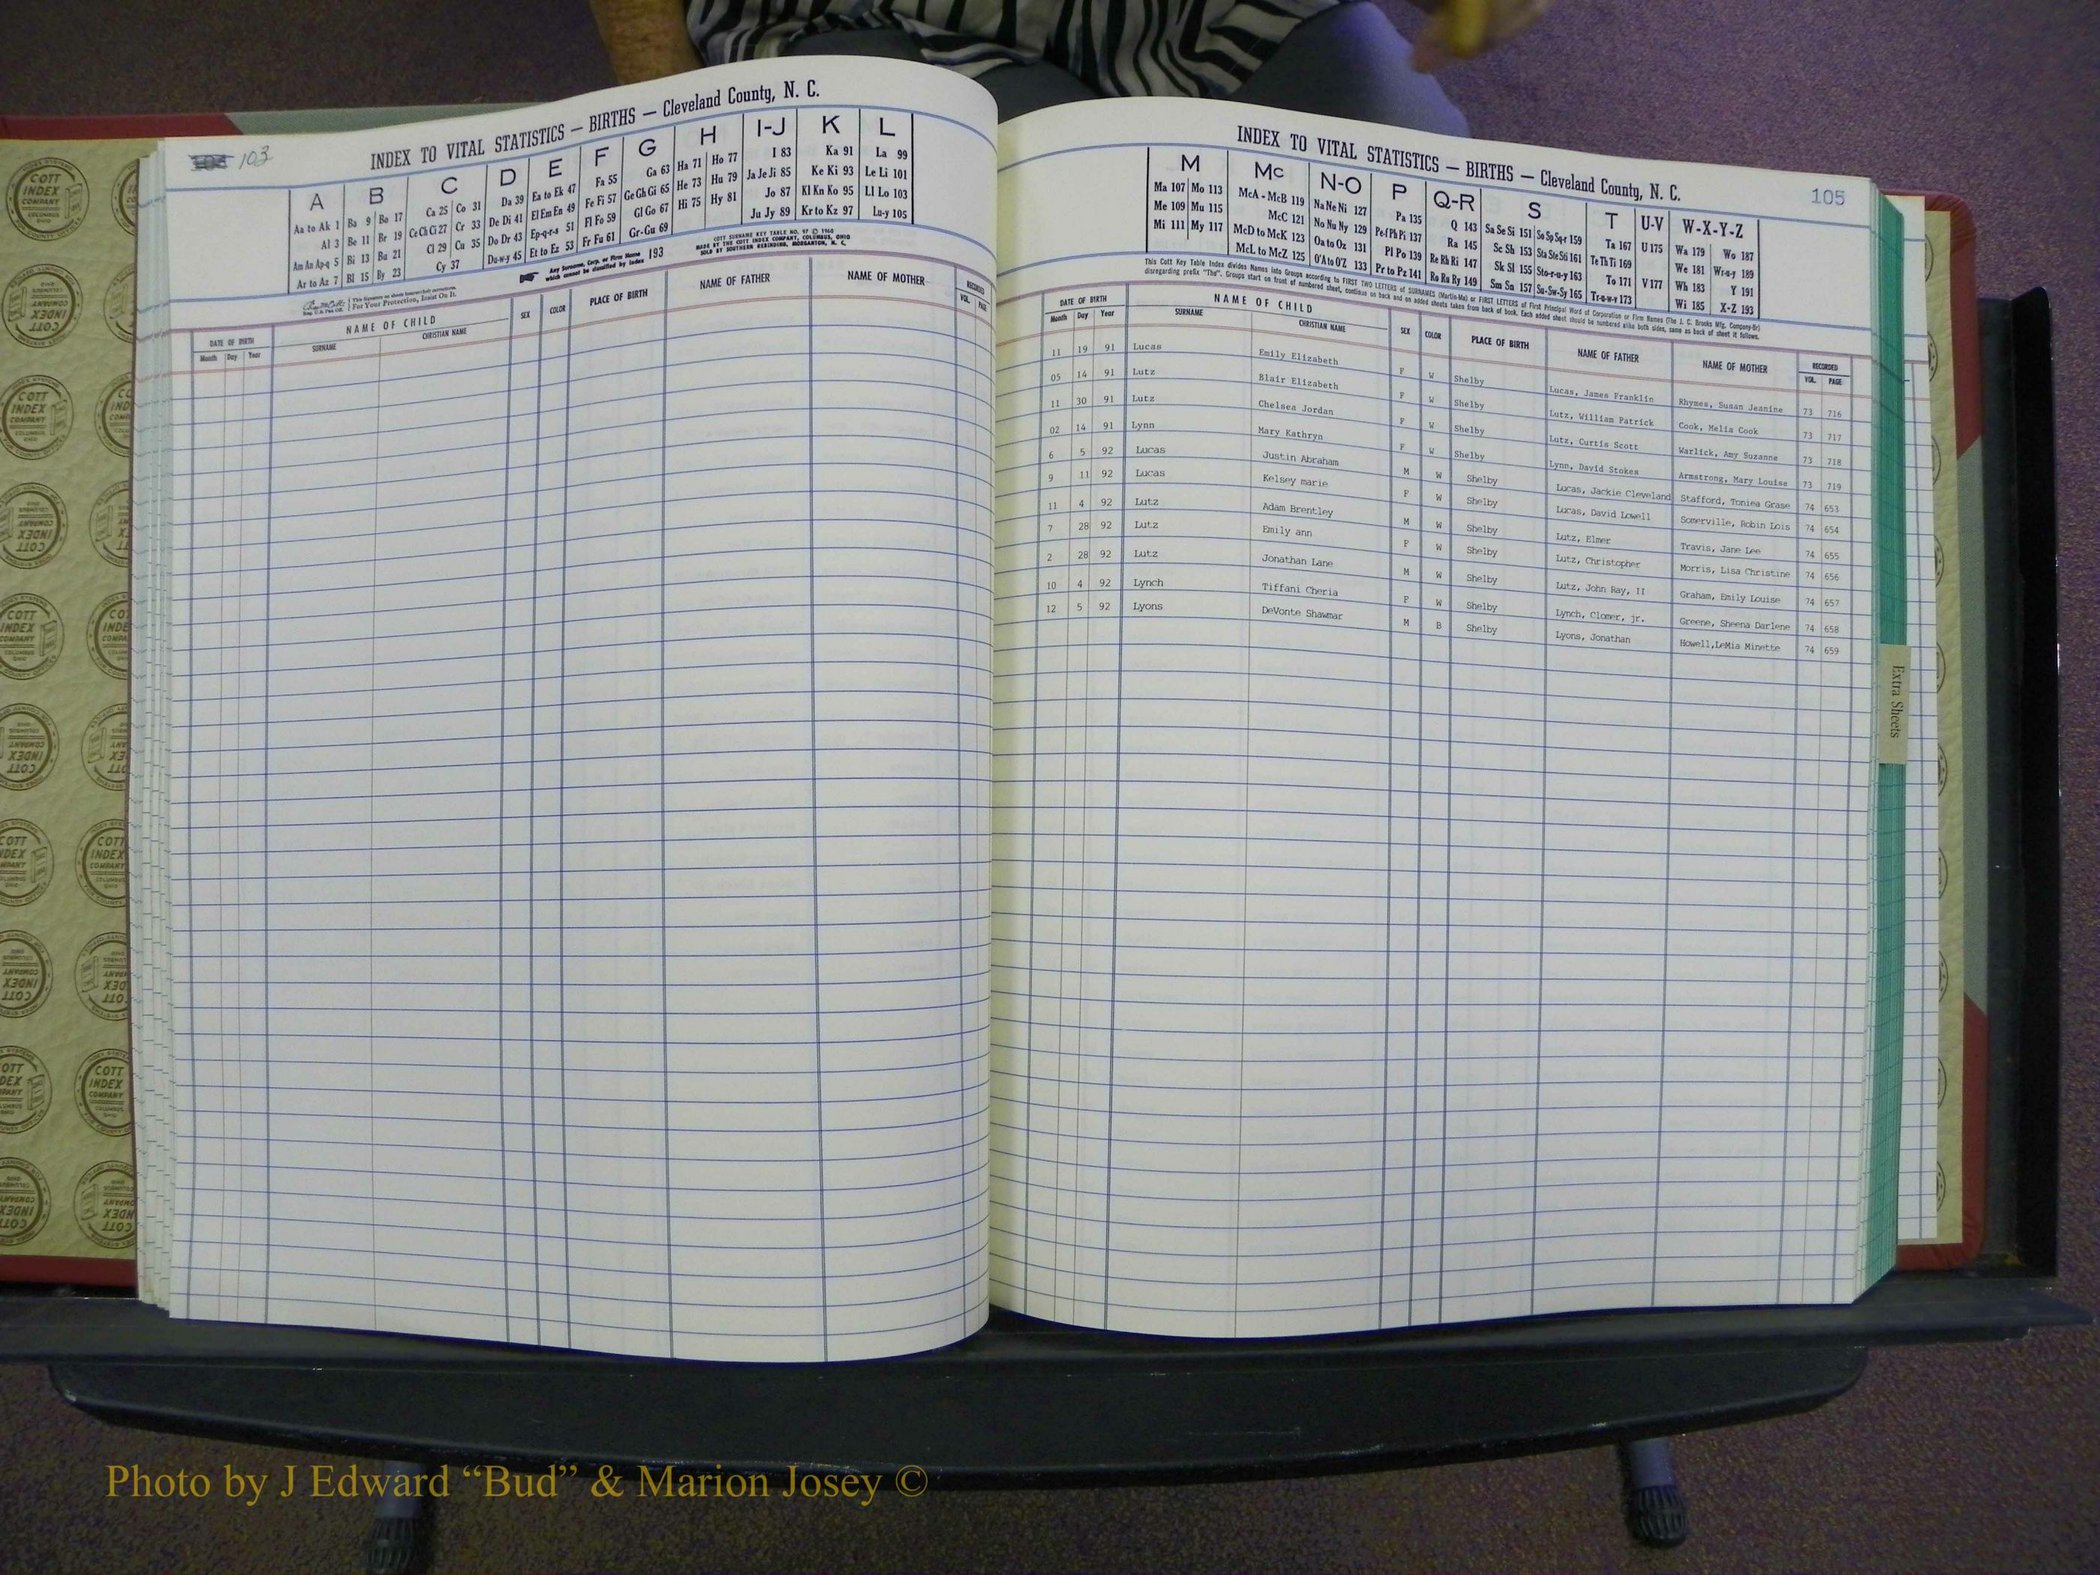 103
INDEX TO VITAL STATISTICS — BIRTHS — Cleveland County, N. C.
A B C D E F G H I-J K L
Aa to Ak 1 Ba 9 Bo 17 Ca 25 Co 31 Da 39 Ea to Ek 47 Fa 55 Ga 63 Ha 71 Ho 77 I 83 Ka 91 La 99
Al 3 Be 11 Br 19 Ce Ch Ci 27 Cr 33 De Di 41 El Em En 49 Fe Fi 57 Ge Gh Gi 65 He 73 Hu 79 Ja Je Ji 85 Ke Ki 93 Le Li 101
Am An Ap-q 5 Bi 13 Bu 21 Cl 29 Cu 35 Do Dr 43 Ep-q-r-s 51 Fl Fo 59 Gl Go 67 Hi 75 Hy 81 Jo 87 Kl Kn Ko 95 Ll Lo 103
Ar to Az 7 Bl 15 By 23 Cy 37 Du-w-y 45 Et to Ez 53 Fr Fu 61 Gr-Gu 69 Ju Jy 89 Kr to Kz 97 Lu-y 105
This Signature on sheets insures their correctness.
For Your Protection, Insist On It.
Any Surname, Corp. or Firm Name which cannot be classified by index 193
COTT SURNAME KEY TABLE NO. 97 © 1960
MADE BY THE COTT INDEX COMPANY, COLUMBUS, OHIO
SOLD BY SOUTHERN REBINDING, MORGANTON, N. C.
DATE OF BIRTH NAME OF CHILD SEX COLOR PLACE OF BIRTH NAME OF FATHER NAME OF MOTHER RECORDED
Month Day Year SURNAME CHRISTIAN NAME VOL. PAGE
INDEX TO VITAL STATISTICS — BIRTHS — Cleveland County, N. C.
105
M Mc N-O P Q-R S T U-V W-X-Y-Z
Ma 107 Mo 113 McA - McB 119 Na Ne Ni 127 Pa 135 Q 143 Sa Se Si 151 So Sp Sq-r 159 Ta 167 U 175 Wa 179 Wo 187
Me 109 Mu 115 McC 121 No Nu Ny 129 Pe-f Ph Pi 137 Ra 145 Sc Sh 153 Sta Ste Sti 161 Te Th Ti 169 We 181 Wr-u-y 189
Mi 111 My 117 McD to McK 123 Oa to Oz 131 Pl Po 139 Re Rh Ri 147 Sk Sl 155 Sto-r-u-y 163 To 171 V 177 Wh 183 Y 191
McL to McZ 125 O'A to O'Z 133 Pr to Pz 141 Ro Ru Ry 149 Sm Sn 157 Su-Sw-Sy 165 Tr-u-w-y 173 Wi 185 X-Z 193
This Cott Key Table Index divides Names into Groups according to FIRST TWO LETTERS of SURNAMES (Martin-Ma) or FIRST LETTERS of First Principal Word of Corporation or Firm Names (The J. C. Brooks Mfg. Company-Br)
disregarding prefix "The". Groups start on front of numbered sheet, continue on back and on added sheets taken from back of book. Each added sheet should be numbered alike both sides, same as back of sheet it follows.
DATE OF BIRTH NAME OF CHILD SEX COLOR PLACE OF BIRTH NAME OF FATHER NAME OF MOTHER RECORDED
Month Day Year SURNAME CHRISTIAN NAME VOL. PAGE
11 19 91 Lucas Emily Elizabeth F W Shelby Lucas, James Franklin Rhymes, Susan Jeanine 73 716
05 14 91 Lutz Blair Elizabeth F W Shelby Lutz, William Patrick Cook, Melia Cook 73 717
11 30 91 Lutz Chelsea Jordan F W Shelby Lutz, Curtis Scott Warlick, Amy Suzanne 73 718
02 14 91 Lynn Mary Kathryn F W Shelby Lynn, David Stokes Armstrong, Mary Louise 73 719
6 5 92 Lucas Justin Abraham M W Shelby Lucas, Jackie Cleveland Stafford, Toniea Grase 74 653
9 11 92 Lucas Kelsey marie F W Shelby Lucas, David Lowell Somerville, Robin Lois 74 654
11 4 92 Lutz Adam Brentley M W Shelby Lutz, Elmer Travis, Jane Lee 74 655
7 28 92 Lutz Emily ann F W Shelby Lutz, Christopher Morris, Lisa Christine 74 656
2 28 92 Lutz Jonathan Lane M W Shelby Lutz, John Ray, II Graham, Emily Louise 74 657
10 4 92 Lynch Tiffani Cheria F W Shelby Lynch, Clomer, jr. Greene, Sheena Darlene 74 658
12 5 92 Lyons DeVonte Shawmar M B Shelby Lyons, Jonathan Howell,LeMia Minette 74 659
Extra Sheets
COTT INDEX COMPANY COLUMBUS OHIO
Photo by J Edward “Bud” & Marion Josey ©